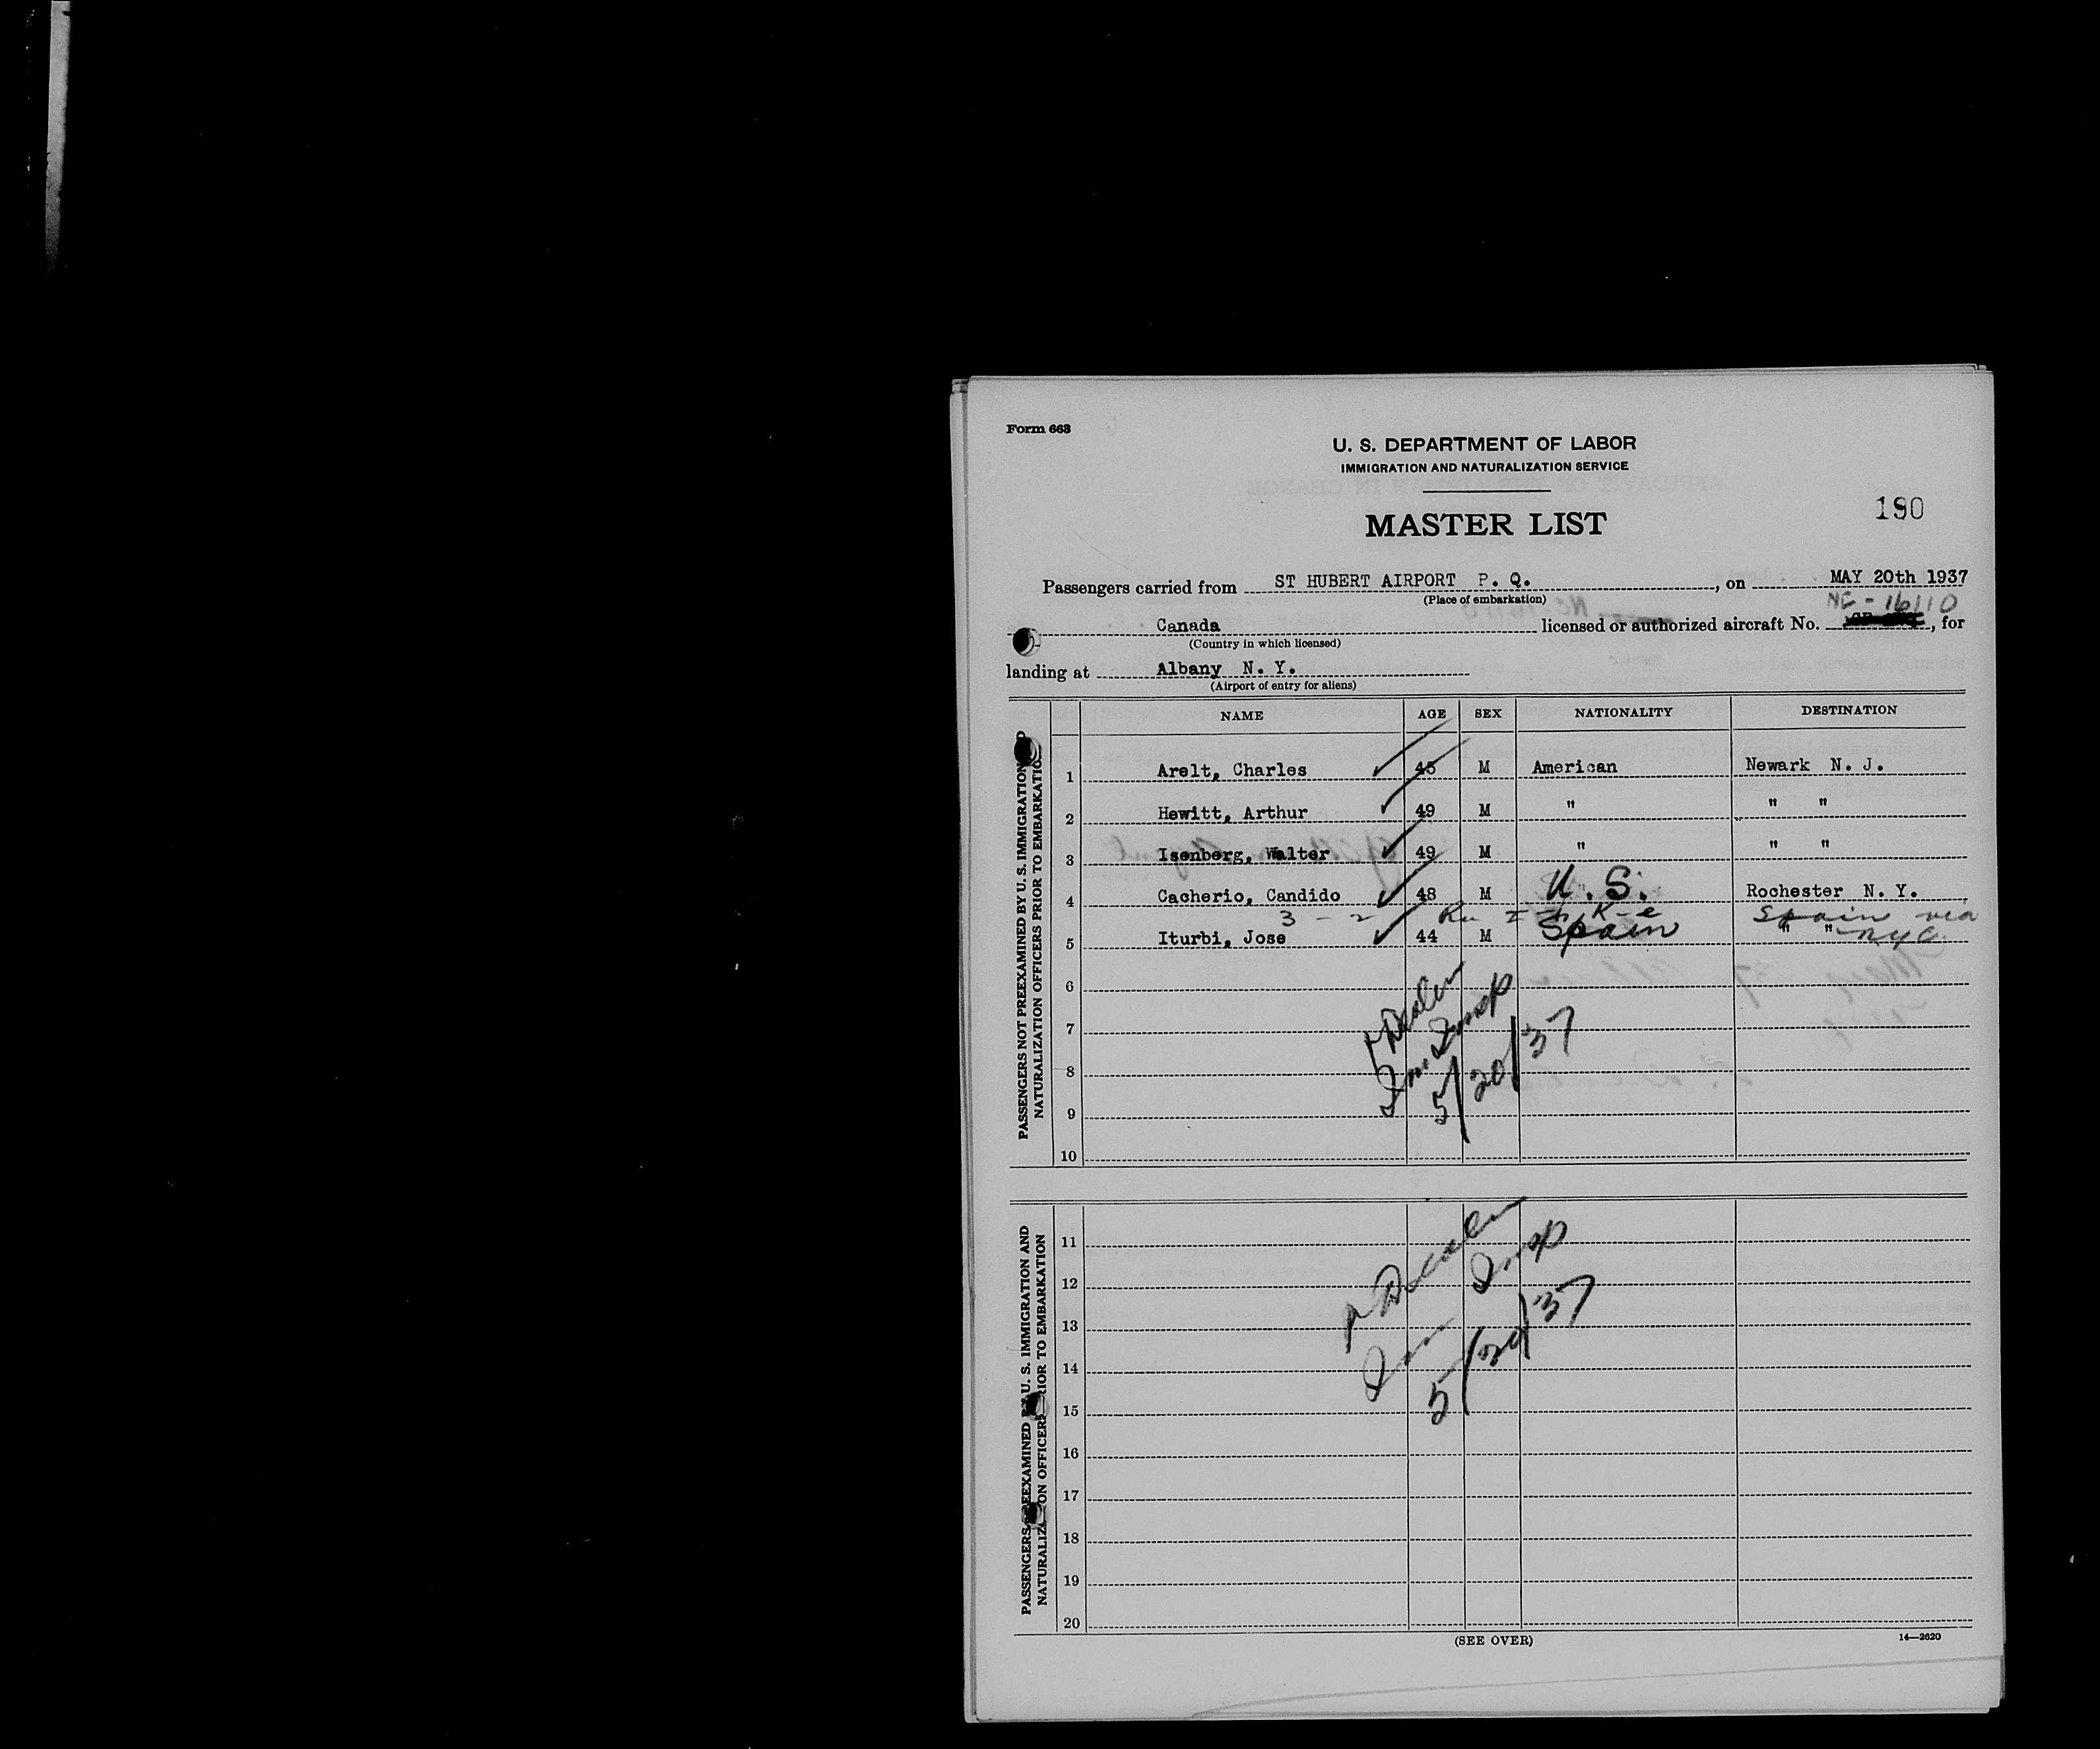 Form 663
U. S. DEPARTMENT OF LABOR
IMMIGRATION AND NATURALIZATION SERVICE
MASTER LIST
190
Passengers carried from ST HUBERT AIRPORT P. Q., on MAY 20th 1937
(Place of embarkation)
NC-16110
Canada licensed or authorized aircraft No. , for
(Country in which licensed)
landing at Albany N. Y.
(Airport of entry for aliens)
NAME AGE SEX NATIONALITY DESTINATION
PASSENGERS NOT PREEXAMINED BY U. S. IMMIGRATION
NATURALIZATION OFFICERS PRIOR TO EMBARKATION
1 Arelt, Charles 45 M American Newark N. J.
2 Hewitt, Arthur 49 M " " "
3 Isenberg, Walter 49 M " " "
4 Cacherio, Candido 48 M U.S. Rochester N. Y.
3 - 2 Spain via
5 Iturbi, Jose 44 M Spain " " NYC.
6
7
8
9
10
Imm. Insp
5/20/37
PASSENGERS PREEXAMINED BY U. S. IMMIGRATION AND
NATURALIZATION OFFICERS PRIOR TO EMBARKATION
11
12
13
14
15
16
17
18
19
20
Imm Insp
5/20/37
(SEE OVER)
14—2620